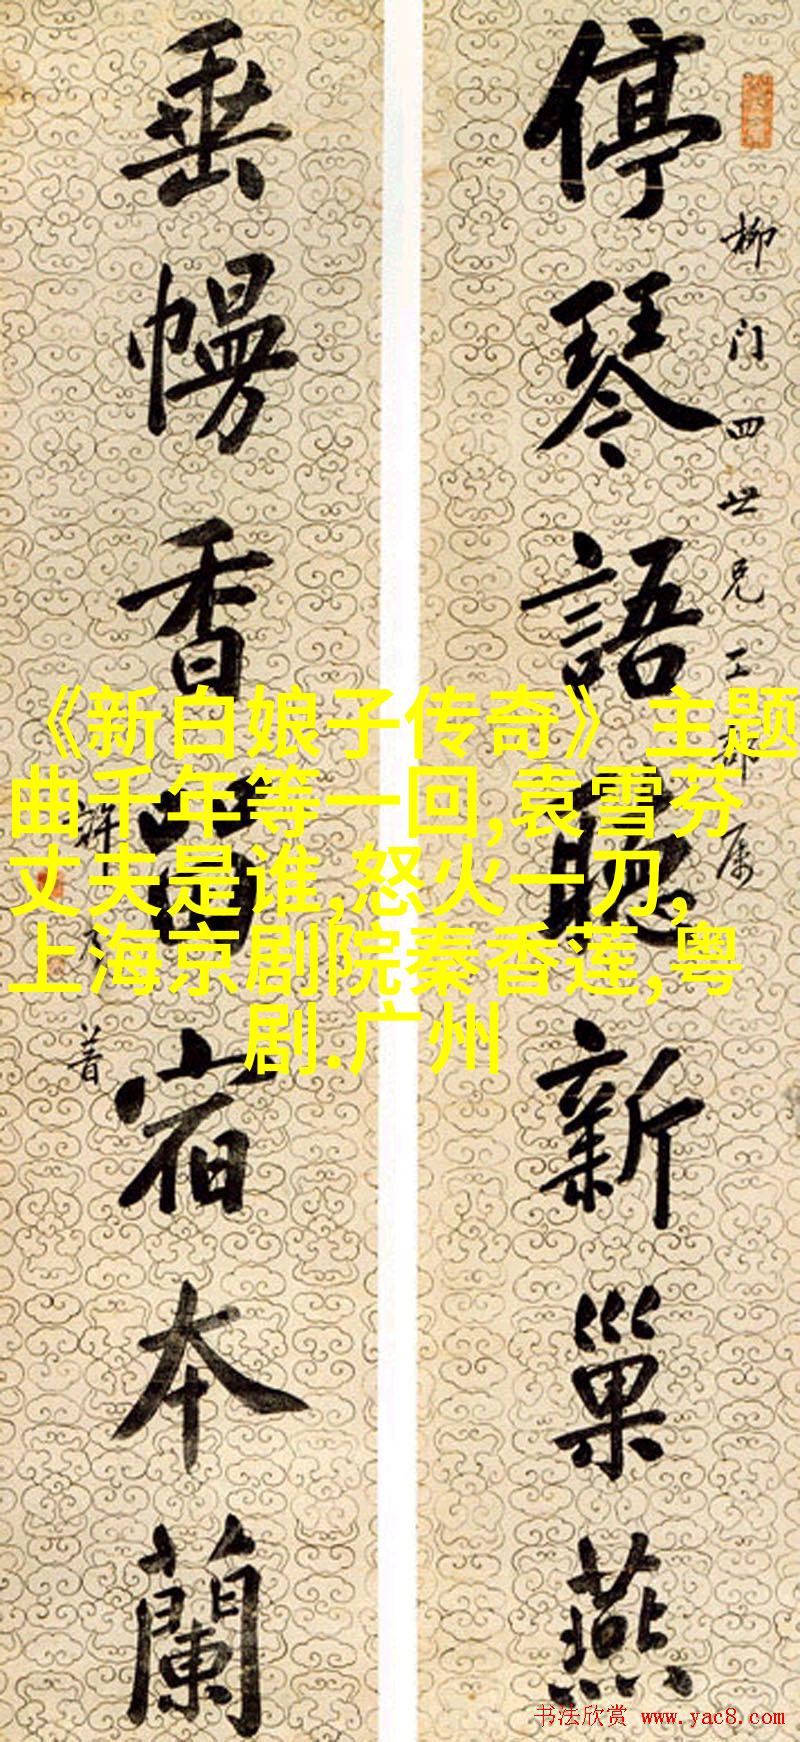 停琴語聽新巢燕
柳门四世兄工部属
垂幔香留宿本蘭
《新白娘子传奇》主题
曲千年等一回,袁雪芬
丈夫是谁,怒火一刀,
上海京剧院秦香莲,粤
剧.广州
书法欣赏 www.yac8.com